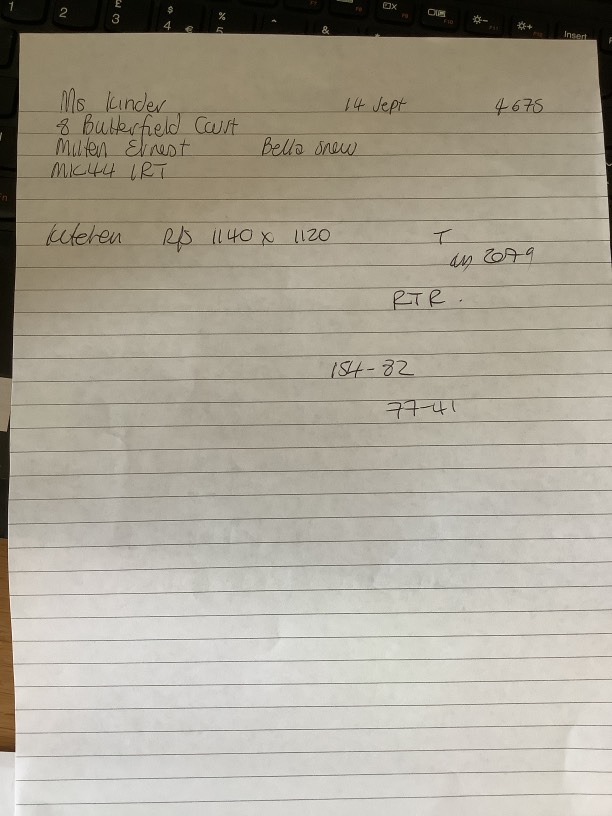 Ms Kinder 14 Sept 4675
8 Butterfield Court
Milton Ernest Bella snow
MK44 1RT
kitchen R/B 1140 x 1120 T
2079
RTR.
154-82
77-41